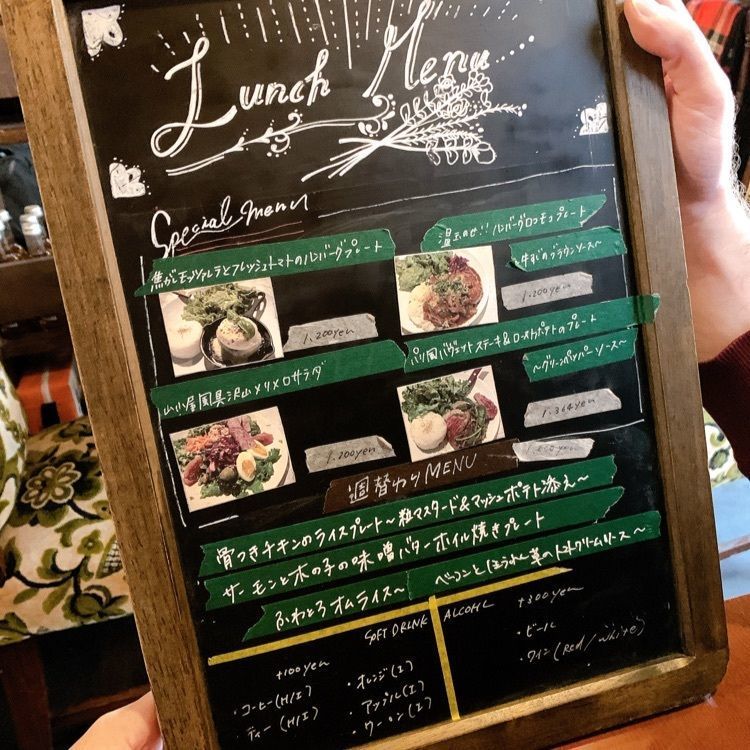 Lunch Menu
Special menu
焦がしモッツァレラとフレッシュトマトのハンバーグプレート
1.200yen
温玉のせ!!ハンバーグロコモコプレート
~牛すじのブラウンソース~
1.200yen
山小屋風具沢山メリメロサラダ
1.200yen
パリ風バヴェットステーキ&ローストポテトのプレート
~グリーンペッパーソース~
1.364yen
週替わりMENU
骨つきチキンのライスプレート~粒マスタード&マッシュポテト添え~
サーモンと木の子の味噌バターホイル焼きプレート
ふわとろオムライス~ ベーコンとほうれん草のトマトクリームソース~
SOFT DRINK
+100yen
・コーヒー(H/I)
・ティー(H/I)
・オレンジ(I)
・アップル(I)
・ウーロン(I)
ALCOHL
+300yen
・ビール
・ワイン(Red/White)